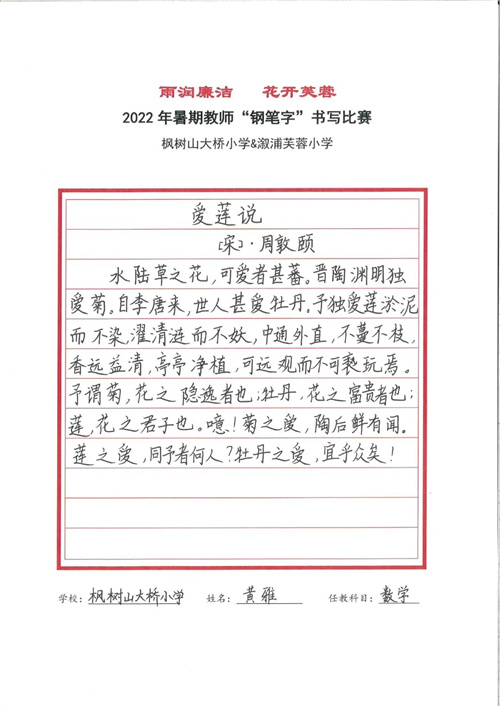 雨润廉洁 花开芙蓉
2022年暑期教师“钢笔字”书写比赛
枫树山大桥小学&溆浦芙蓉小学
爱莲说
[宋]·周敦颐
水陆草之花,可爱者甚蕃。晋陶渊明独
爱菊。自李唐来,世人甚爱牡丹。予独爱莲淤泥
而不染,濯清涟而不妖,中通外直,不蔓不枝,
香远益清,亭亭净植,可远观而不可亵玩焉。
予谓菊,花之隐逸者也;牡丹,花之富贵者也;
莲,花之君子也。噫!菊之爱,陶后鲜有闻。
莲之爱,同予者何人?牡丹之爱,宜乎众矣!
学校:枫树山大桥小学 姓名:黄雅 任教科目:数学